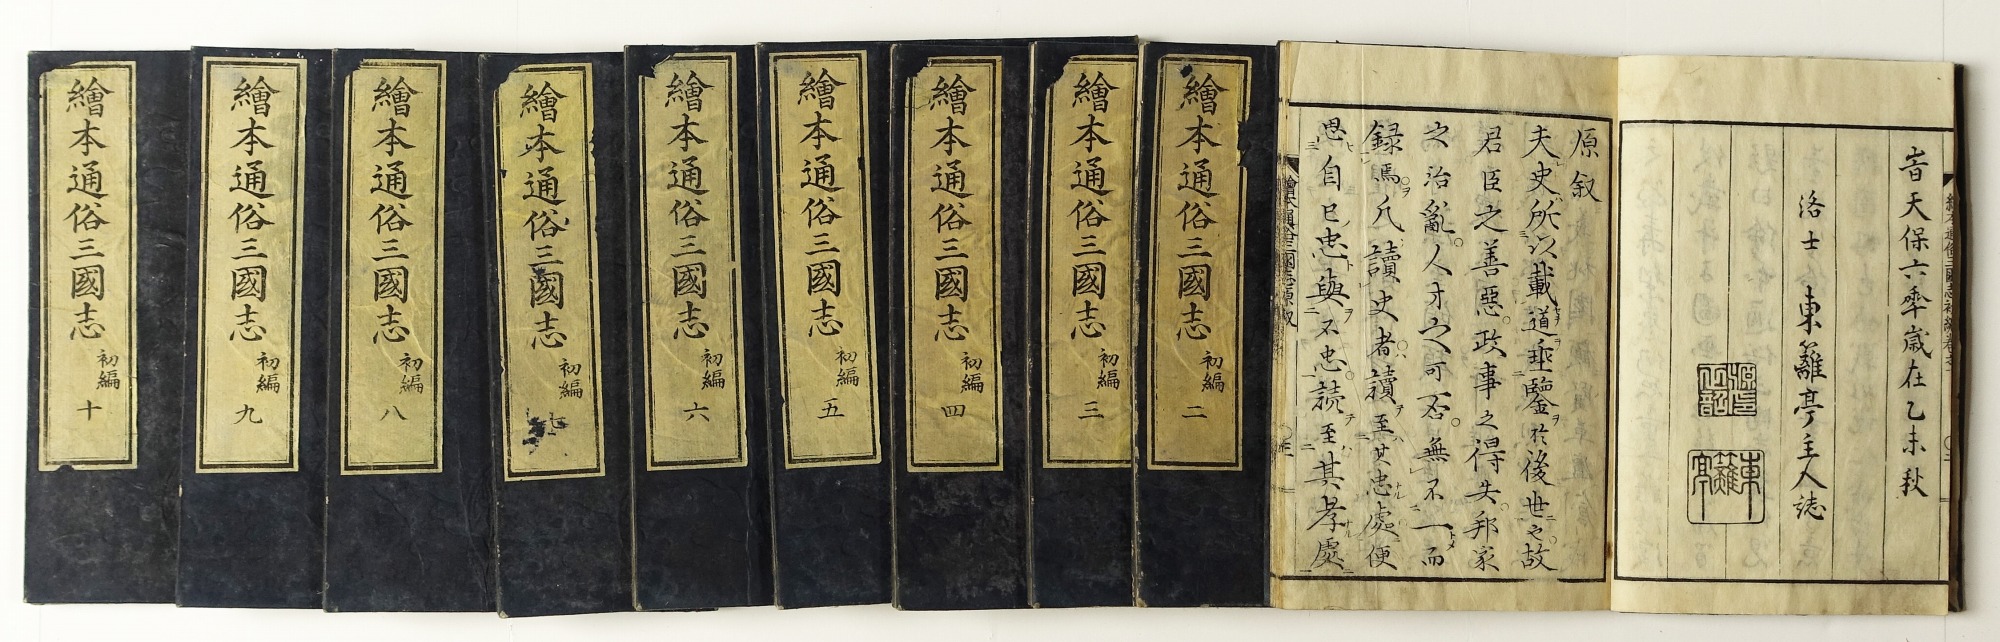 旹天保六秊歳在乙未秋
洛士 東籬亭主人誌
東籬亭
原叙
夫史所以載道垂鑒於後世之故
君臣之善惡政事之得失邦家
之治亂人才之可否無不一而
録焉凡讀史者讀至其忠處便
思自己忠與不忠読至其孝處
繪本通俗三國志 初編 二
繪本通俗三國志 初編 三
繪本通俗三國志 初編 四
繪本通俗三國志 初編 五
繪本通俗三國志 初編 六
繪本通俗三國志 初編 七
繪本通俗三國志 初編 八
繪本通俗三國志 初編 九
繪本通俗三國志 初編 十